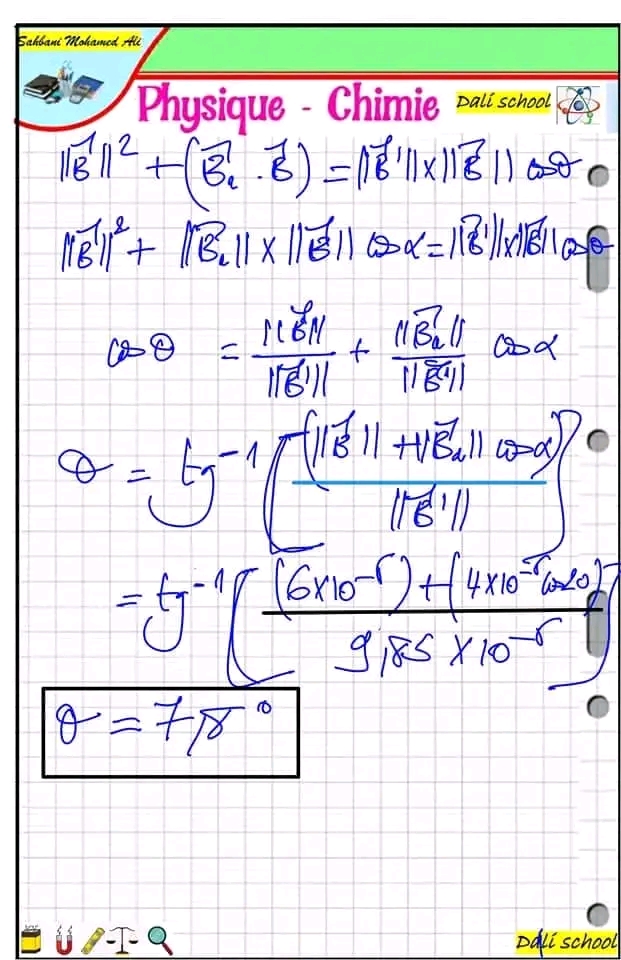 Sahbani Mohamed Ali
Physique - Chimie Dali school
||B⃗||² + (B⃗₂ . B⃗) = ||B⃗'|| x ||B⃗|| cosθ
||B⃗||² + ||B⃗₂|| x ||B⃗|| cosα = ||B⃗'|| x ||B⃗|| cosθ
cosθ = ||B⃗|| / ||B⃗'|| + ||B⃗₂|| / ||B⃗'|| cosα
θ = tg⁻¹ [ (||B⃗|| + ||B⃗₂|| cosα) / ||B⃗'|| ]
= tg⁻¹ [ (6x10⁻⁵) + (4x10⁻⁵ cos20) / 9,85 x 10⁻⁵ ]
Dali school